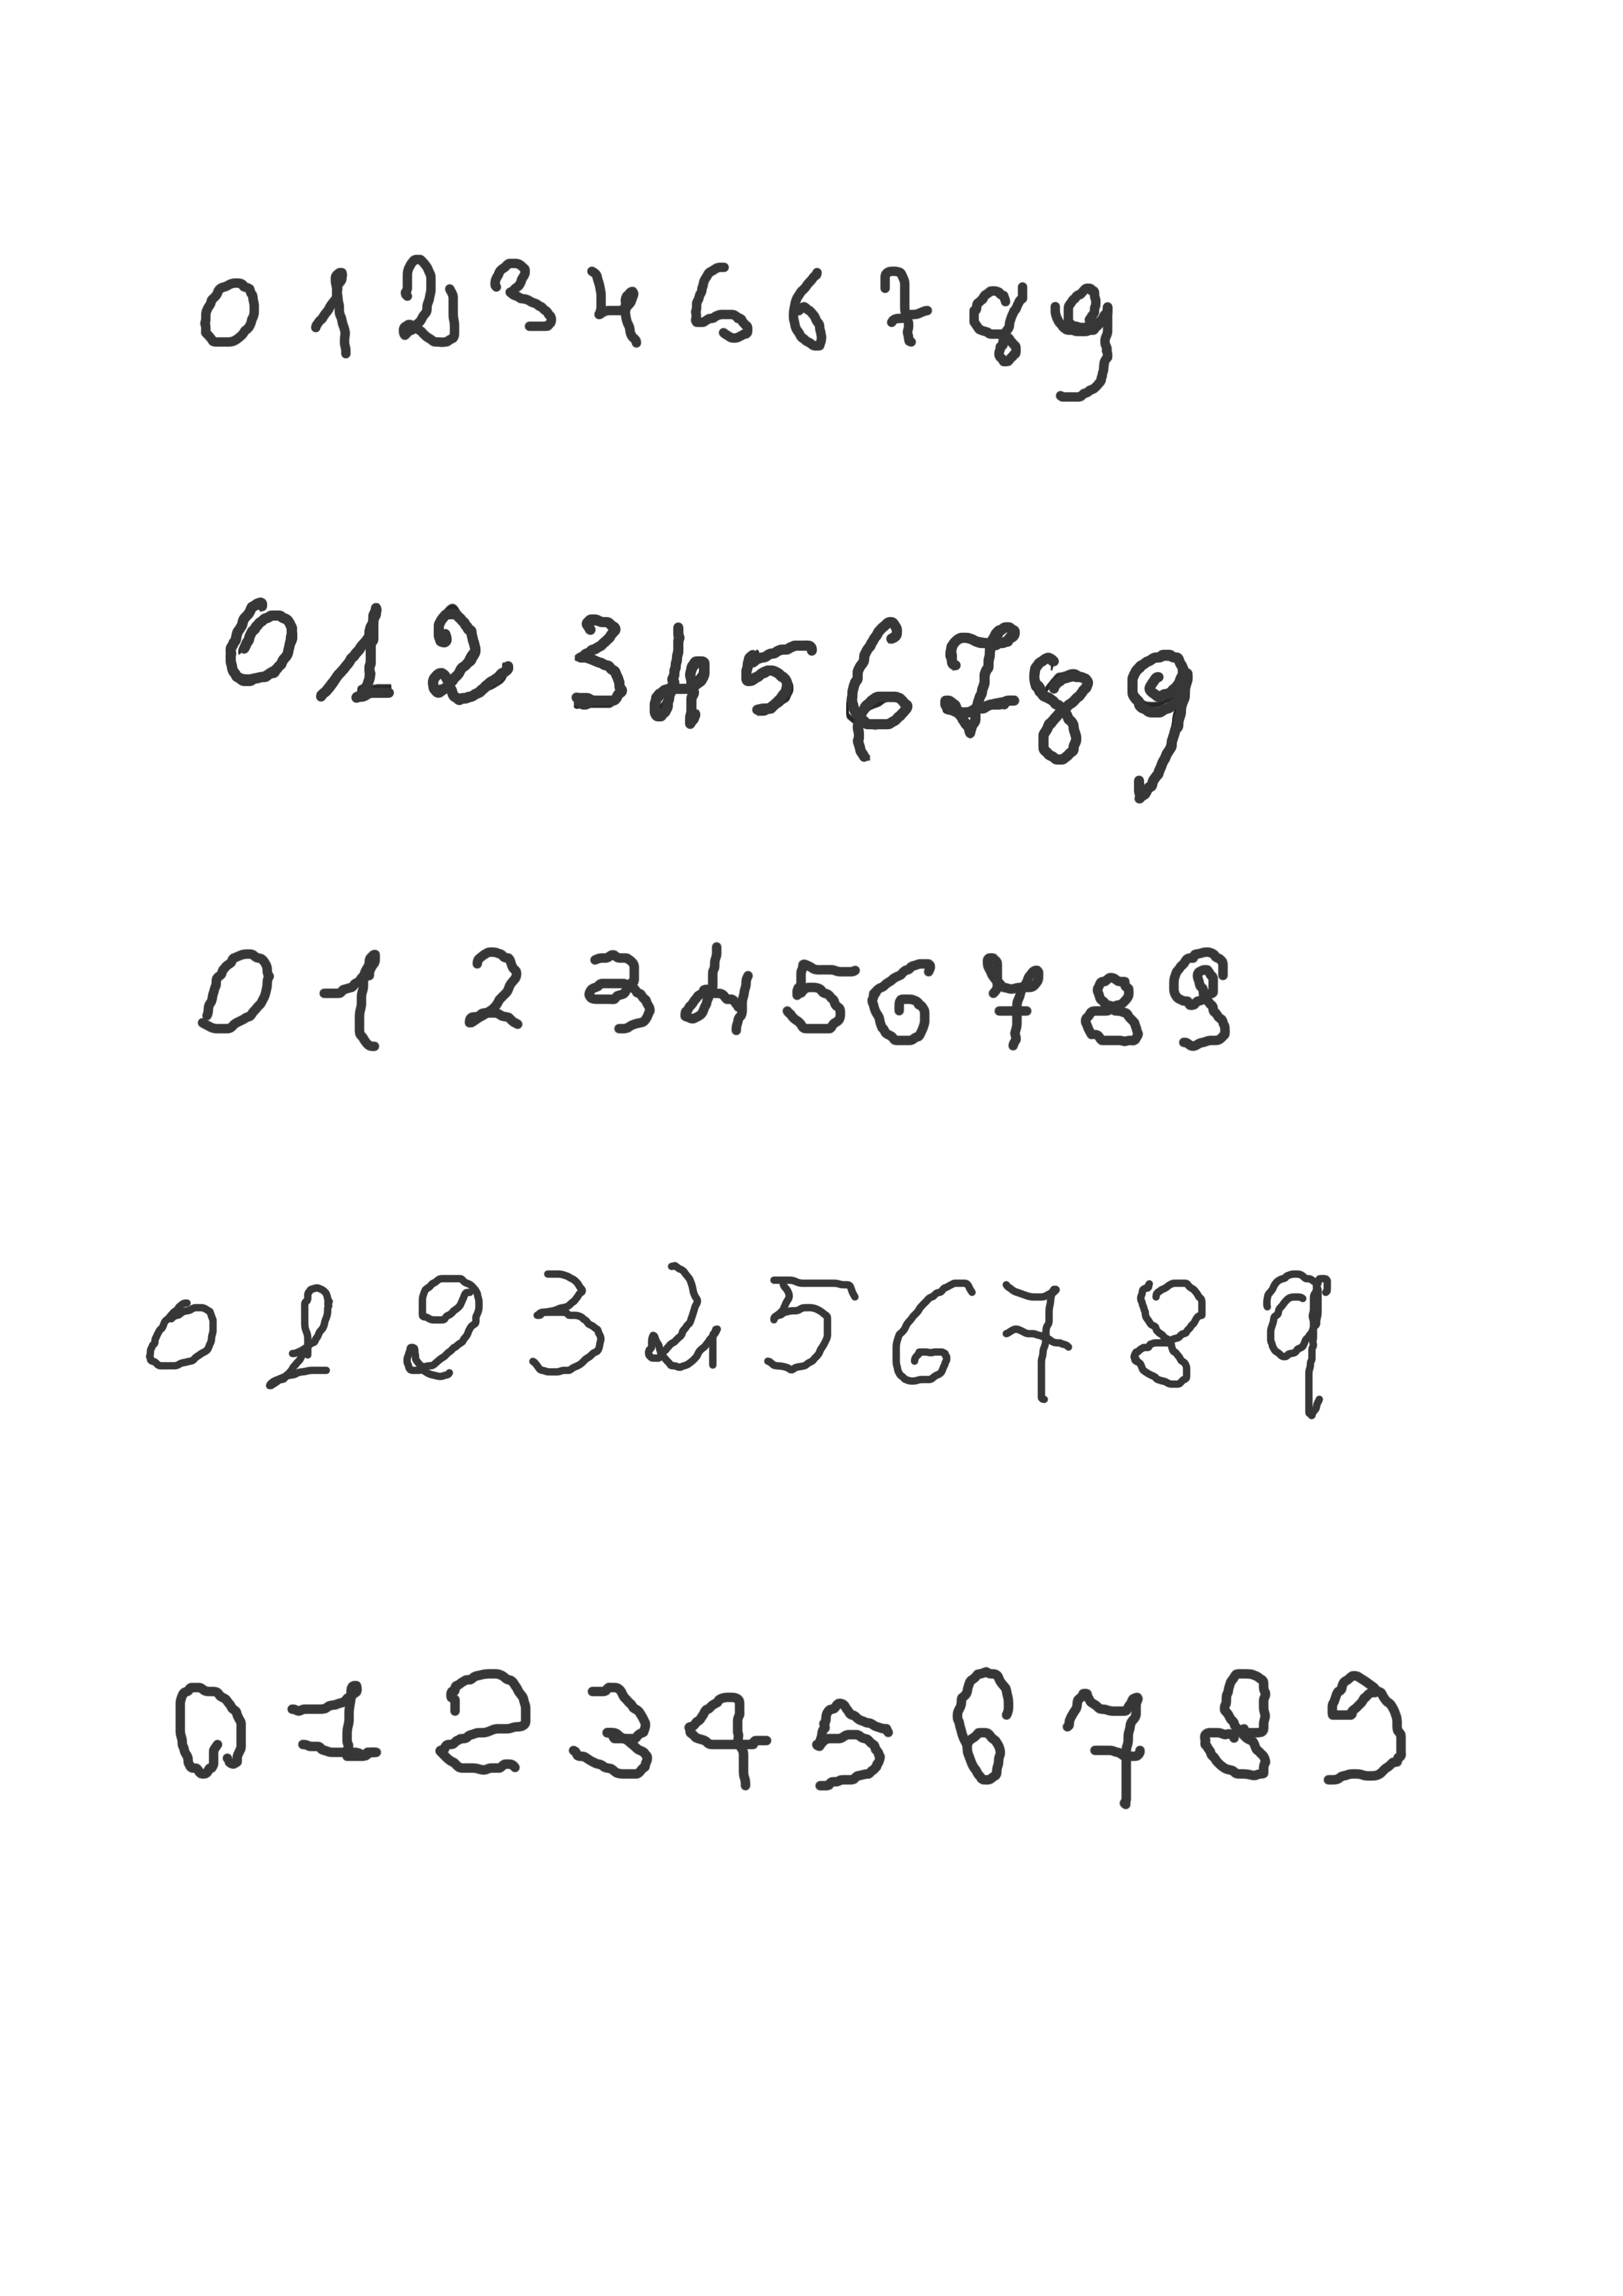 0 1 2 3 4 5 6 7 8 9
0 1 2 3 4 5 6 7 8 9
0 1 2 3 4 5 6 7 8 9
0 1 2 3 4 5 6 7 8 9
0 1 2 3 4 5 6 7 8 9